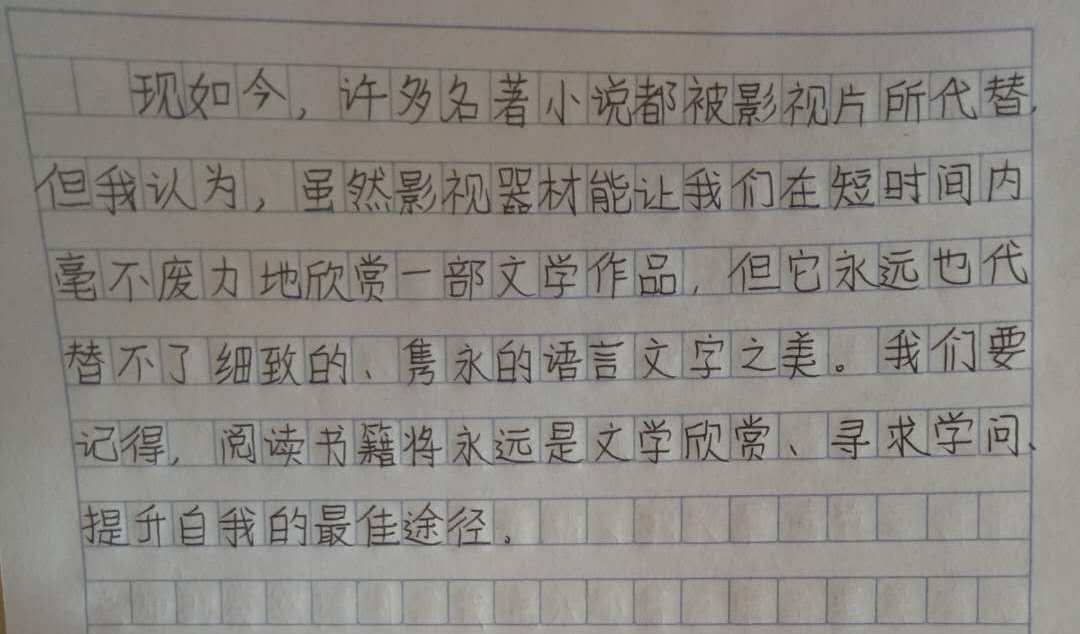 现如今，许多名著小说都被影视片所代替，
但我认为，虽然影视器材能让我们在短时间内
毫不废力地欣赏一部文学作品，但它永远也代
替不了细致的、隽永的语言文字之美。我们要
记得，阅读书籍将永远是文学欣赏、寻求学问、
提升自我的最佳途径。